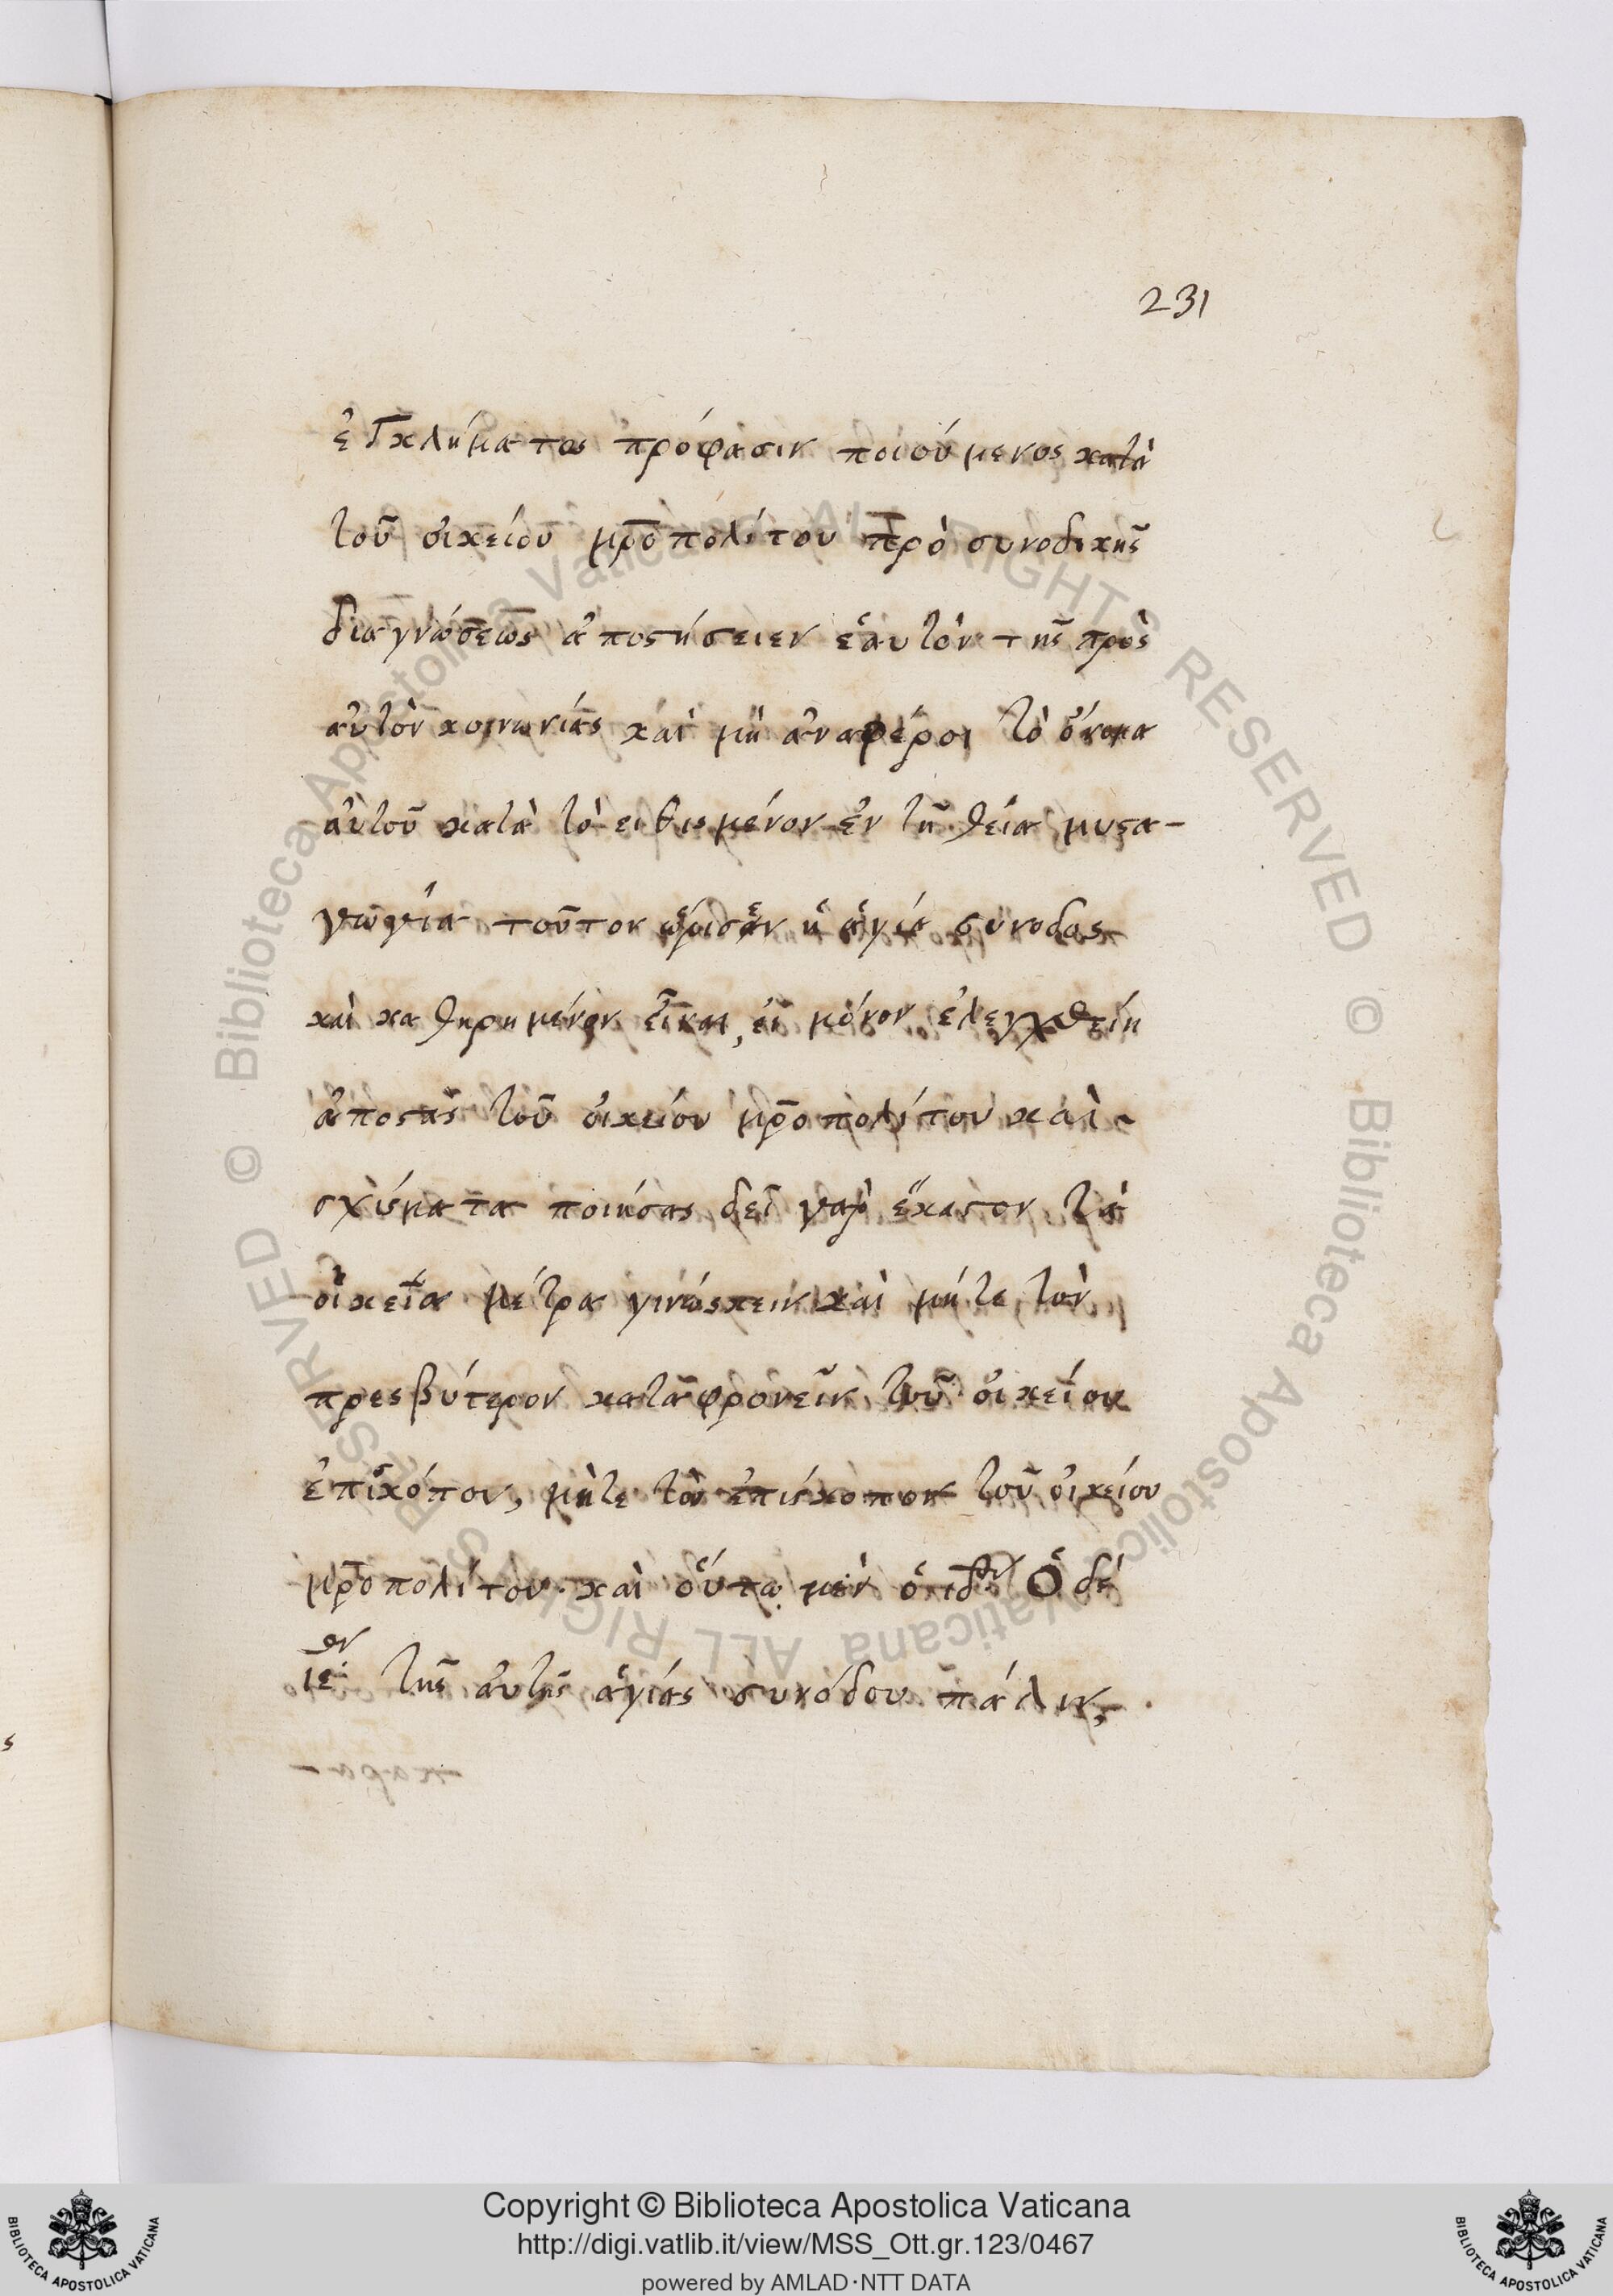 231
ἐγκλήματος πρόφασιν ποιούμενος κατὰ
τοῦ οἰκείου μρ̅οπολίτου πρὸ συνοδικῆς
διαγνώσεως ἀποστήσειεν ἑαυτὸν τῆς πρὸς
αὐτὸν κοινωνίας καὶ μὴ ἀναφέροι τὸ ὄνομα
αὐτοῦ κατὰ τὸ εἰθισμένον ἐν τῆ θεία μυστα-
γωγία τοῦτον ὥρισεν ἡ ἁγία σύνοδος
καὶ καθηρημένον εἶναι, εἰ μόνον ἐλεγχθείη
ἀποστὰς τοῦ οἰκείου μρ̅οπολίτου καὶ
σχίσματα ποιήσας δεῖ γαρ ἕκαστον τὰ
οἰκεῖα μέτρα γινώσκειν καὶ μήτε τὸν
πρεσβύτερον καταφρονεῖν τοῦ οἰκείου
ἐπισκόπου, μήτε τὸν ἐπίσκοπον τοῦ οἰκείου
μρ̅οπολίτου. καὶ οὕτω μὲν ὁ ιδος Ὁ δέ
ιε. τῆς αὐτῆς ἁγίας συνόδου πάλιν,
Copyright © Biblioteca Apostolica Vaticana
http://digi.vatlib.it/view/MSS_Ott.gr.123/0467
powered by AMLAD·NTT DATA
BIBLIOTECA APOSTOLICA VATICANA
BIBLIOTECA APOSTOLICA VATICANA
© Biblioteca Apostolica Vaticana ALL RIGHTS RESERVED © Biblioteca Apostolica Vaticana ALL RIGHTS RESERVED